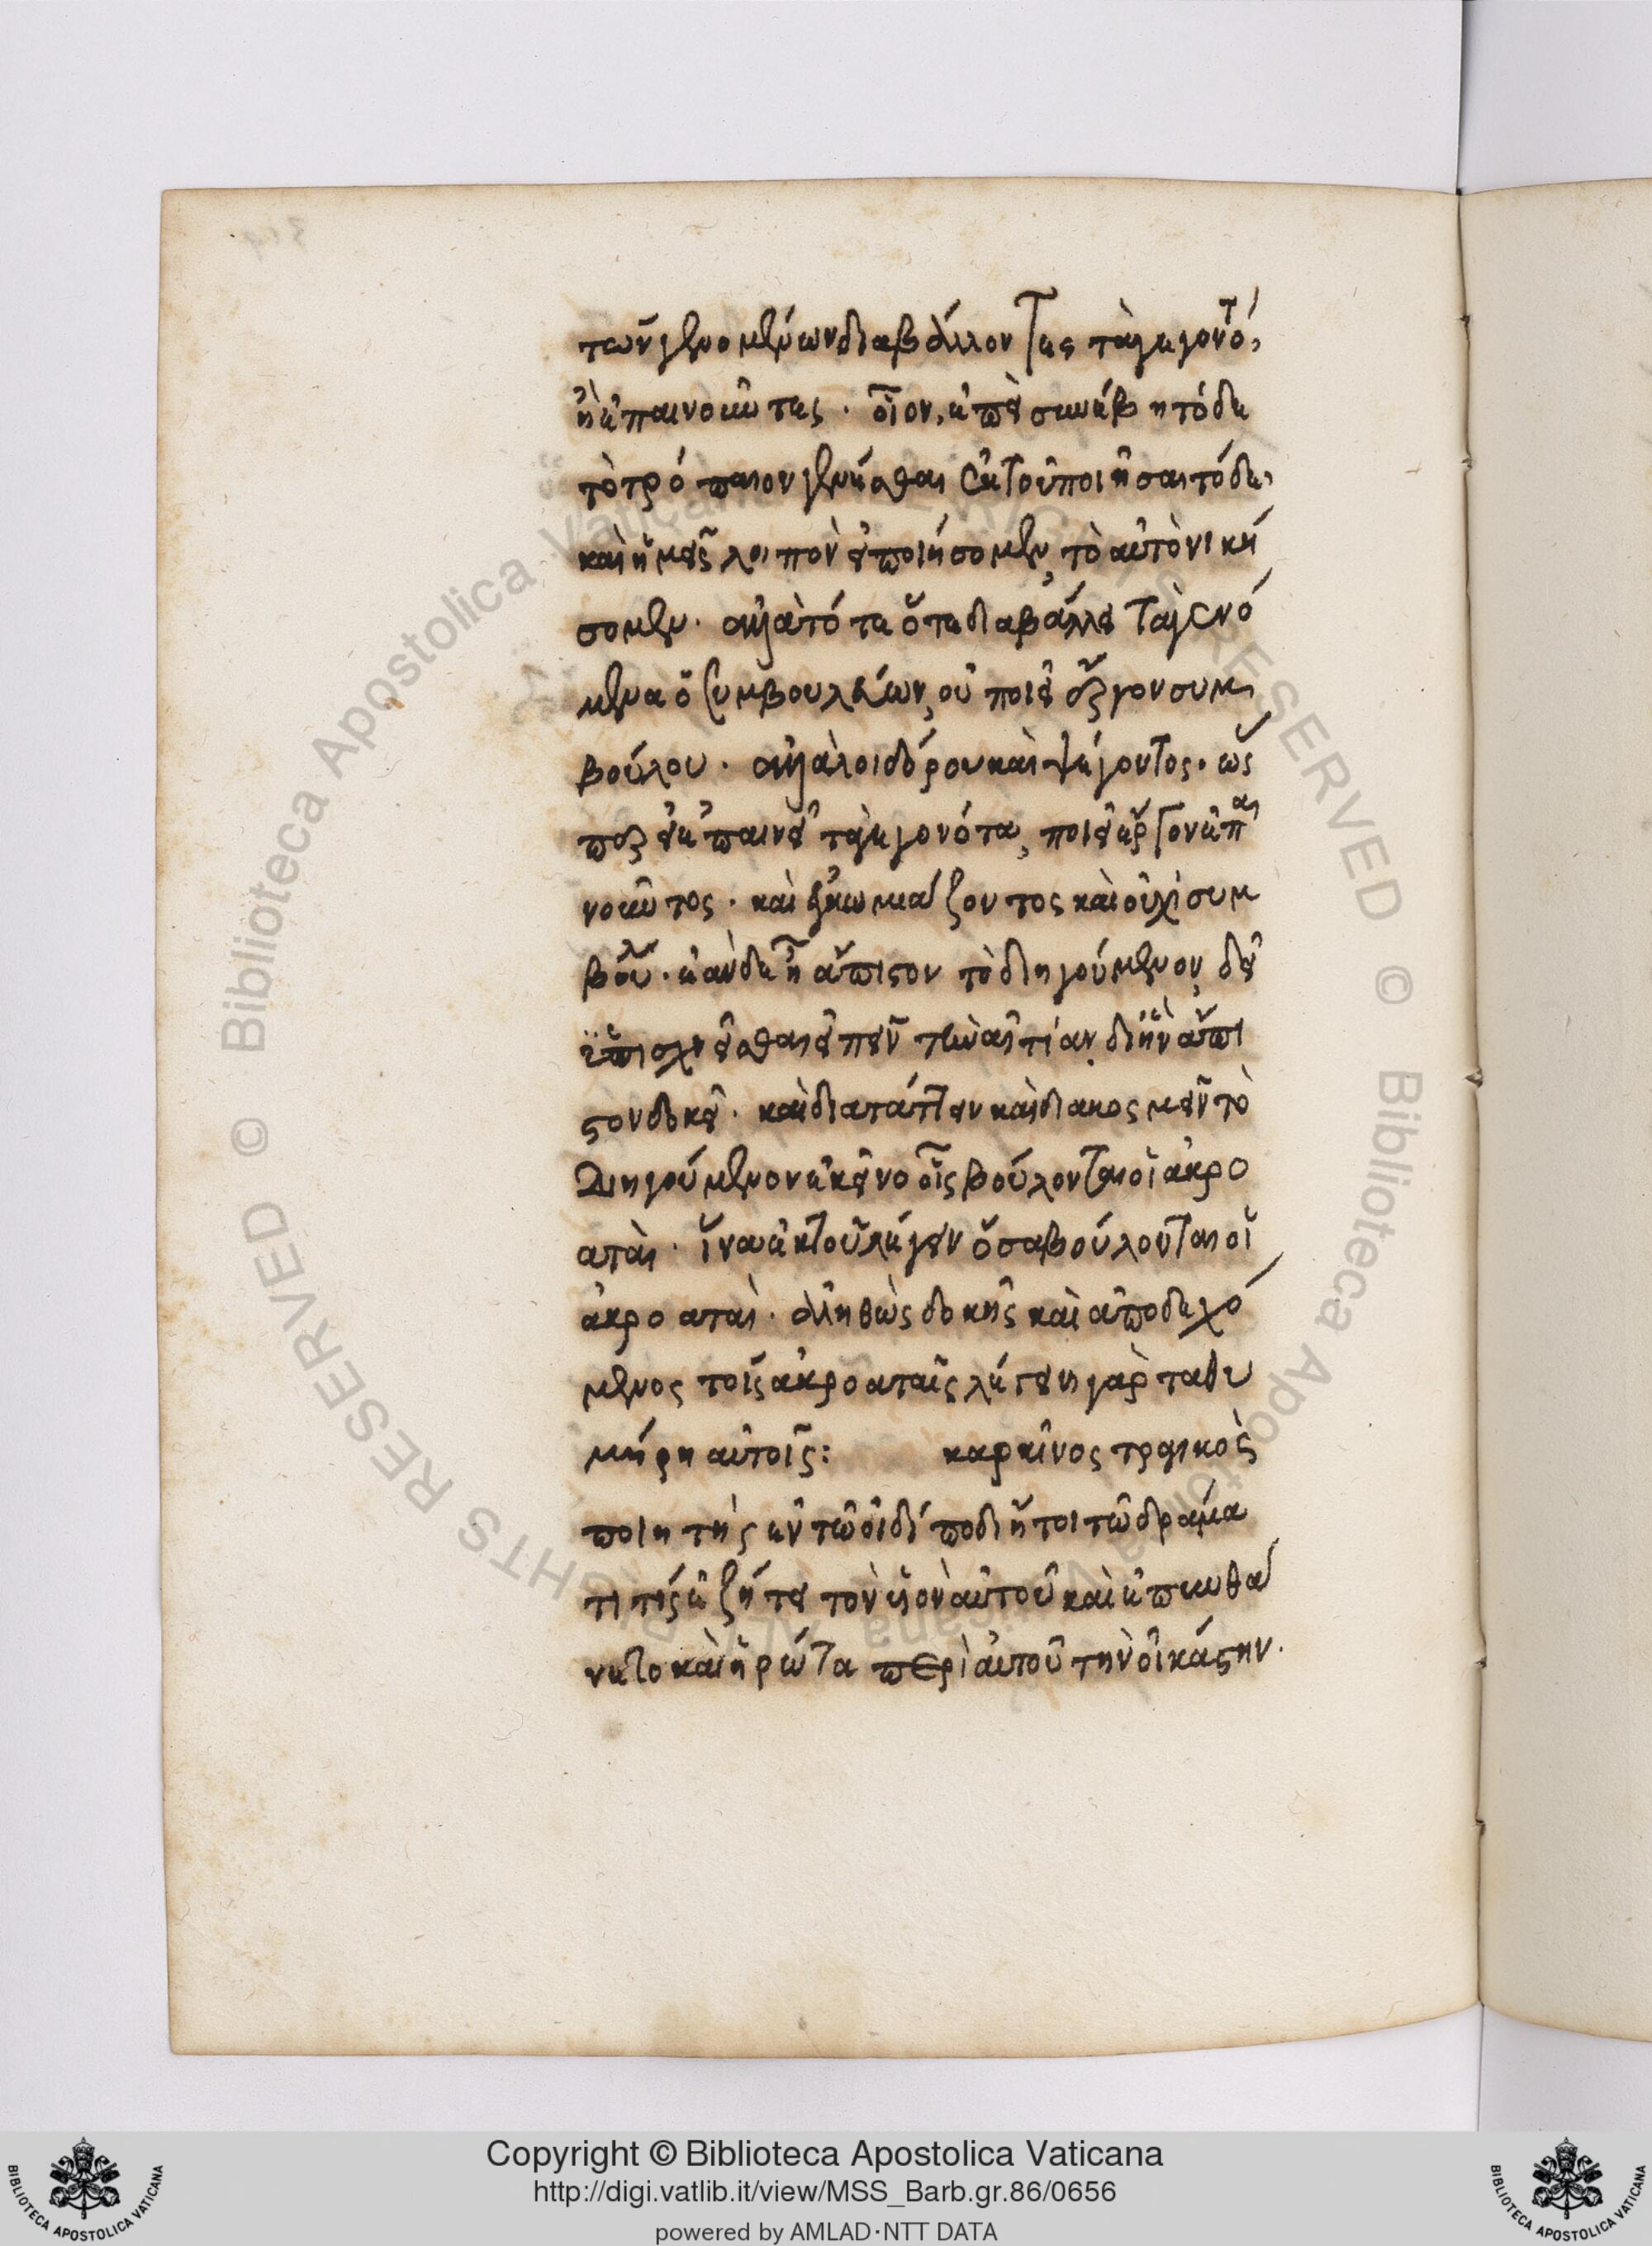 τῶν γενομένων διαβάλλοντες τὰ γεγονότ
ἢ ἐπαινοῦντες · οἷον, ἐπεὶ συνέβη τόδε
τὸ τρόπαιον γενέσθαι ἐκ τοῦ ποιῆσαι τόδε,
καὶ ἡμεῖς λοιπὸν εἰ ποιήσομεν τὸ αὐτὸ νική
σομεν · ἀλλὰ τότε ὅτε διαβάλλει τὰ γενό
μενα ὁ συμβουλεύων, οὐ ποιεῖ ἔργον συμ
βούλου · ἀλλὰ λοιδόρου καὶ ψέγοντος · ὥς
περ εἰ ἐπαινεῖ τὰ γεγονότα, ποιεῖ ἔργον ἐπαι
νοῦντος · καὶ ἐγκωμιάζοντος καὶ οὐχὶ συμ
βούλου · ἐὰν δὲ ἦ ἄπιστον τὸ διηγούμενον, δεῖ
ὑπισχνεῖσθαι εἰπεῖν τὴν αἰτίαν, δι' ἣν ἄπι
στον δοκεῖ · καὶ διατάττειν καὶ διακοσμεῖν τὸ
διηγούμενον ἐκεῖνο οἷς βούλονται οἱ ἀκρο
αταὶ · ἵνα ἐκ τοῦ λέγειν ὅσα βούλονται οἱ
ἀκροαταὶ · ἀληθὼς δοκῆς καὶ ἀποδεχό
μενος τοῖς ἀκροαταῖς λέγειν γὰρ τὰ θυ
μήρη αὐτοῖς: καρκῖνος τραγικὸς
ποιητής ἐν τῶ οἰδίποδι ἤτοι τῶ δράμα
τι τίς ἐζήτει τὸν υἱὸν αὐτοῦ καὶ ἐπυνθά
νετο καὶ ἠρώτα περὶ αὐτοῦ τὴν οἰκάστην.
Copyright © Biblioteca Apostolica Vaticana
http://digi.vatlib.it/view/MSS_Barb.gr.86/0656
powered by AMLAD·NTT DATA